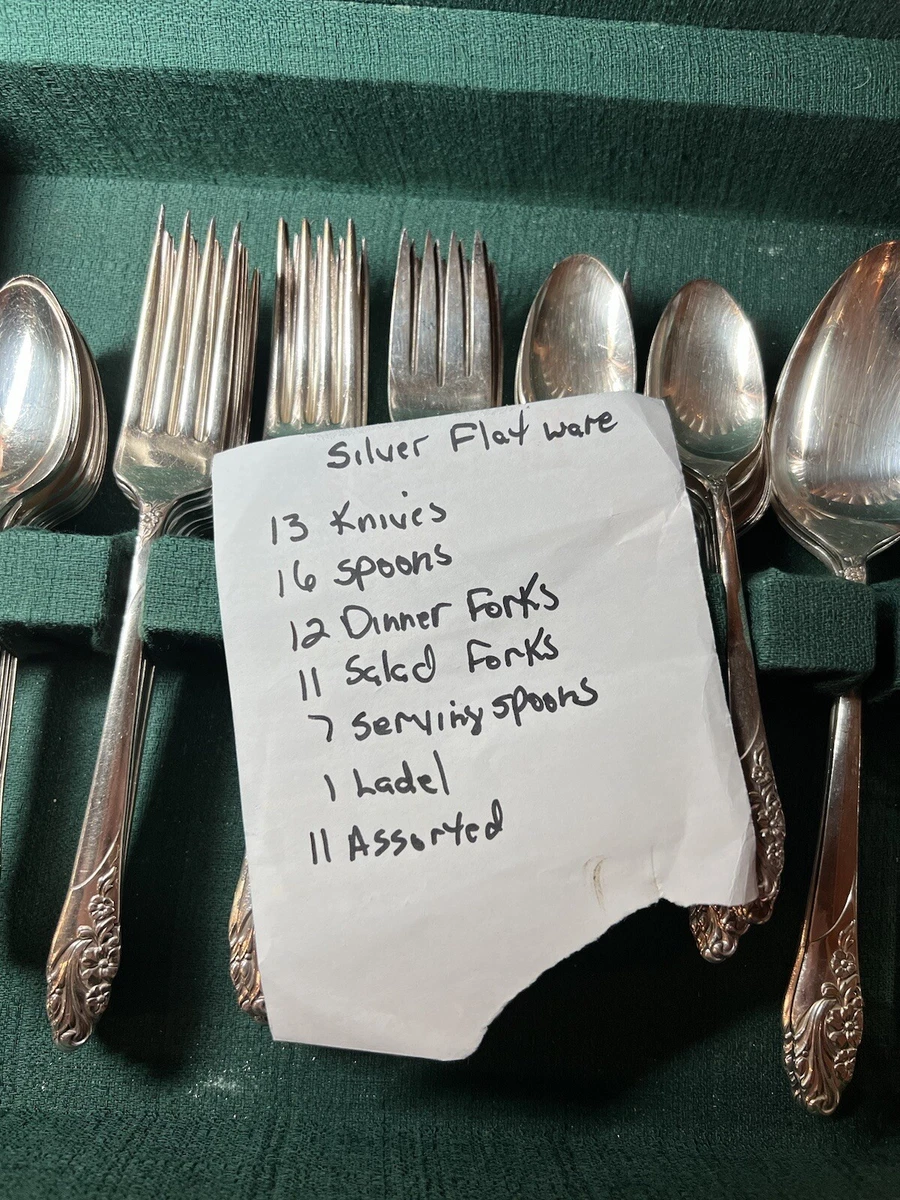 Silver Flat ware
13 Knives
16 spoons
12 Dinner Forks
11 Salad Forks
7 serving spoons
1 Ladel
11 Assorted